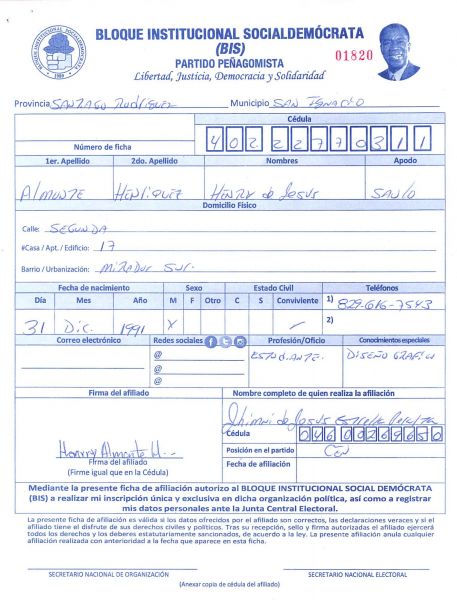 BLOQUE INSTITUCIONAL SOCIALDEMÓCRATA
(BIS)
PARTIDO PEÑAGOMISTA
Libertad, Justicia, Democracia y Solidaridad
01820
Provincia SANTIAGO RODRIGUEZ Municipio SAN IGNACIO
Cédula
Número de ficha 40222770311
1er. Apellido 2do. Apellido Nombres Apodo
Almonte Henriquez Henry de Jesus
Domicilio Físico
Calle: SEGUNDA
#Casa / Apt. / Edificio: 17
Barrio / Urbanización: MIRADOR SUR.
Fecha de nacimiento Sexo Estado Civil Teléfonos
Día Mes Año M F Otro C S Conviviente 1) 829-616-7543
31 Dic. 1991 X / 2)
Correo electrónico Redes sociales Profesión/Oficio Conocimientos especiales
@ ESTUDIANTE. DISEÑO GRAFICO
@
@
Firma del afiliado Nombre completo de quien realiza la afiliación
Jhimni de Jesus Estrella
Cédula
Henrry Almonte H. Posición en el partido CEN
Firma del afiliado Fecha de afiliación
(Firme igual que en la Cédula)
Mediante la presente ficha de afiliación autorizo al BLOQUE INSTITUCIONAL SOCIAL DEMÓCRATA
(BIS) a realizar mi inscripción única y exclusiva en dicha organización política, así como a registrar
mis datos personales ante la Junta Central Electoral.
La presente ficha de afiliación es válida si los datos ofrecidos por el afiliado son correctos, las declaraciones veraces y si el
afiliado tiene el disfrute de sus derechos civiles y políticos. Tras su recepción, sello y firma autorizadas el afiliado ejercerá
todos los derechos y los deberes estatutariamente sancionados, de acuerdo a la ley. La presente afiliación anula cualquier
afiliación realizada con anterioridad a la fecha que aparece en esta ficha.
SECRETARIO NACIONAL DE ORGANIZACIÓN SECRETARIO NACIONAL ELECTORAL
(Anexar copia de cédula del afiliado)